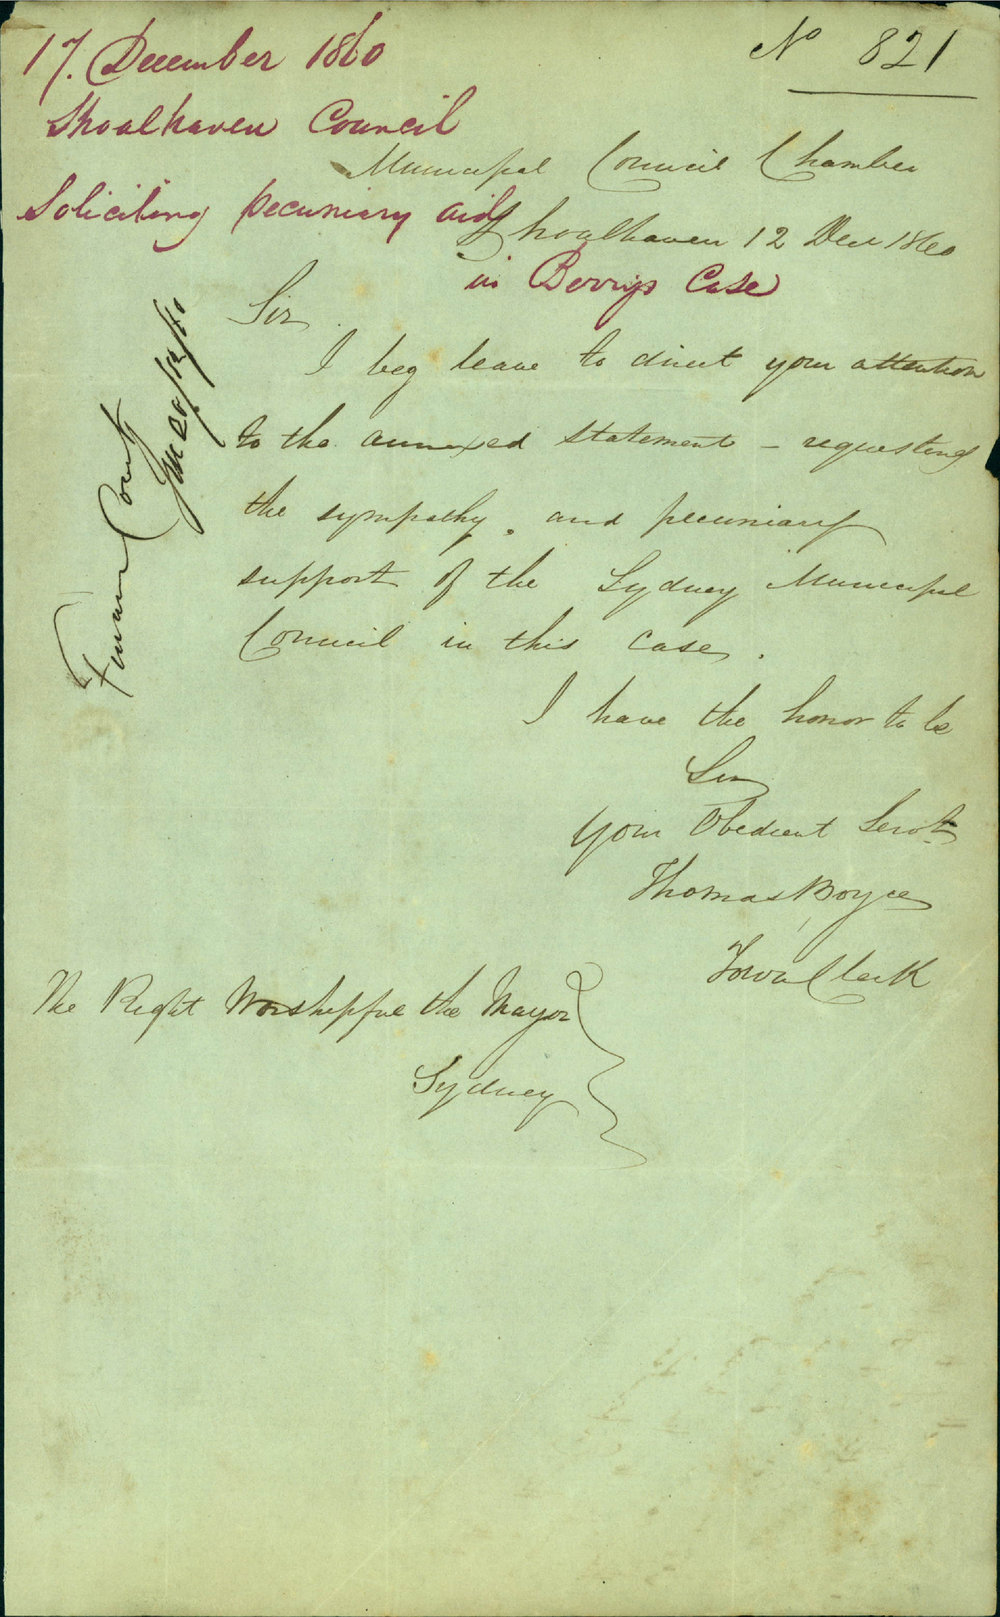 17. December 1860
No 821
Shoalhaven Council
Municipal Council Chamber
Soliciting pecuniary aid
Shoalhaven 12 Decr 1860
in Berry's Case
Sir
I beg leave to direct your attention
to the annexed statement - requesting
the sympathy. and pecuniary
support of the Sydney Municipal
Council in this case.
I have the honor to be
Sir
Your Obedient Servt
Thomas Boyce
Town Clerk
The Right Worshipful the Mayor
Sydney
Finance Comtee
20/12/60